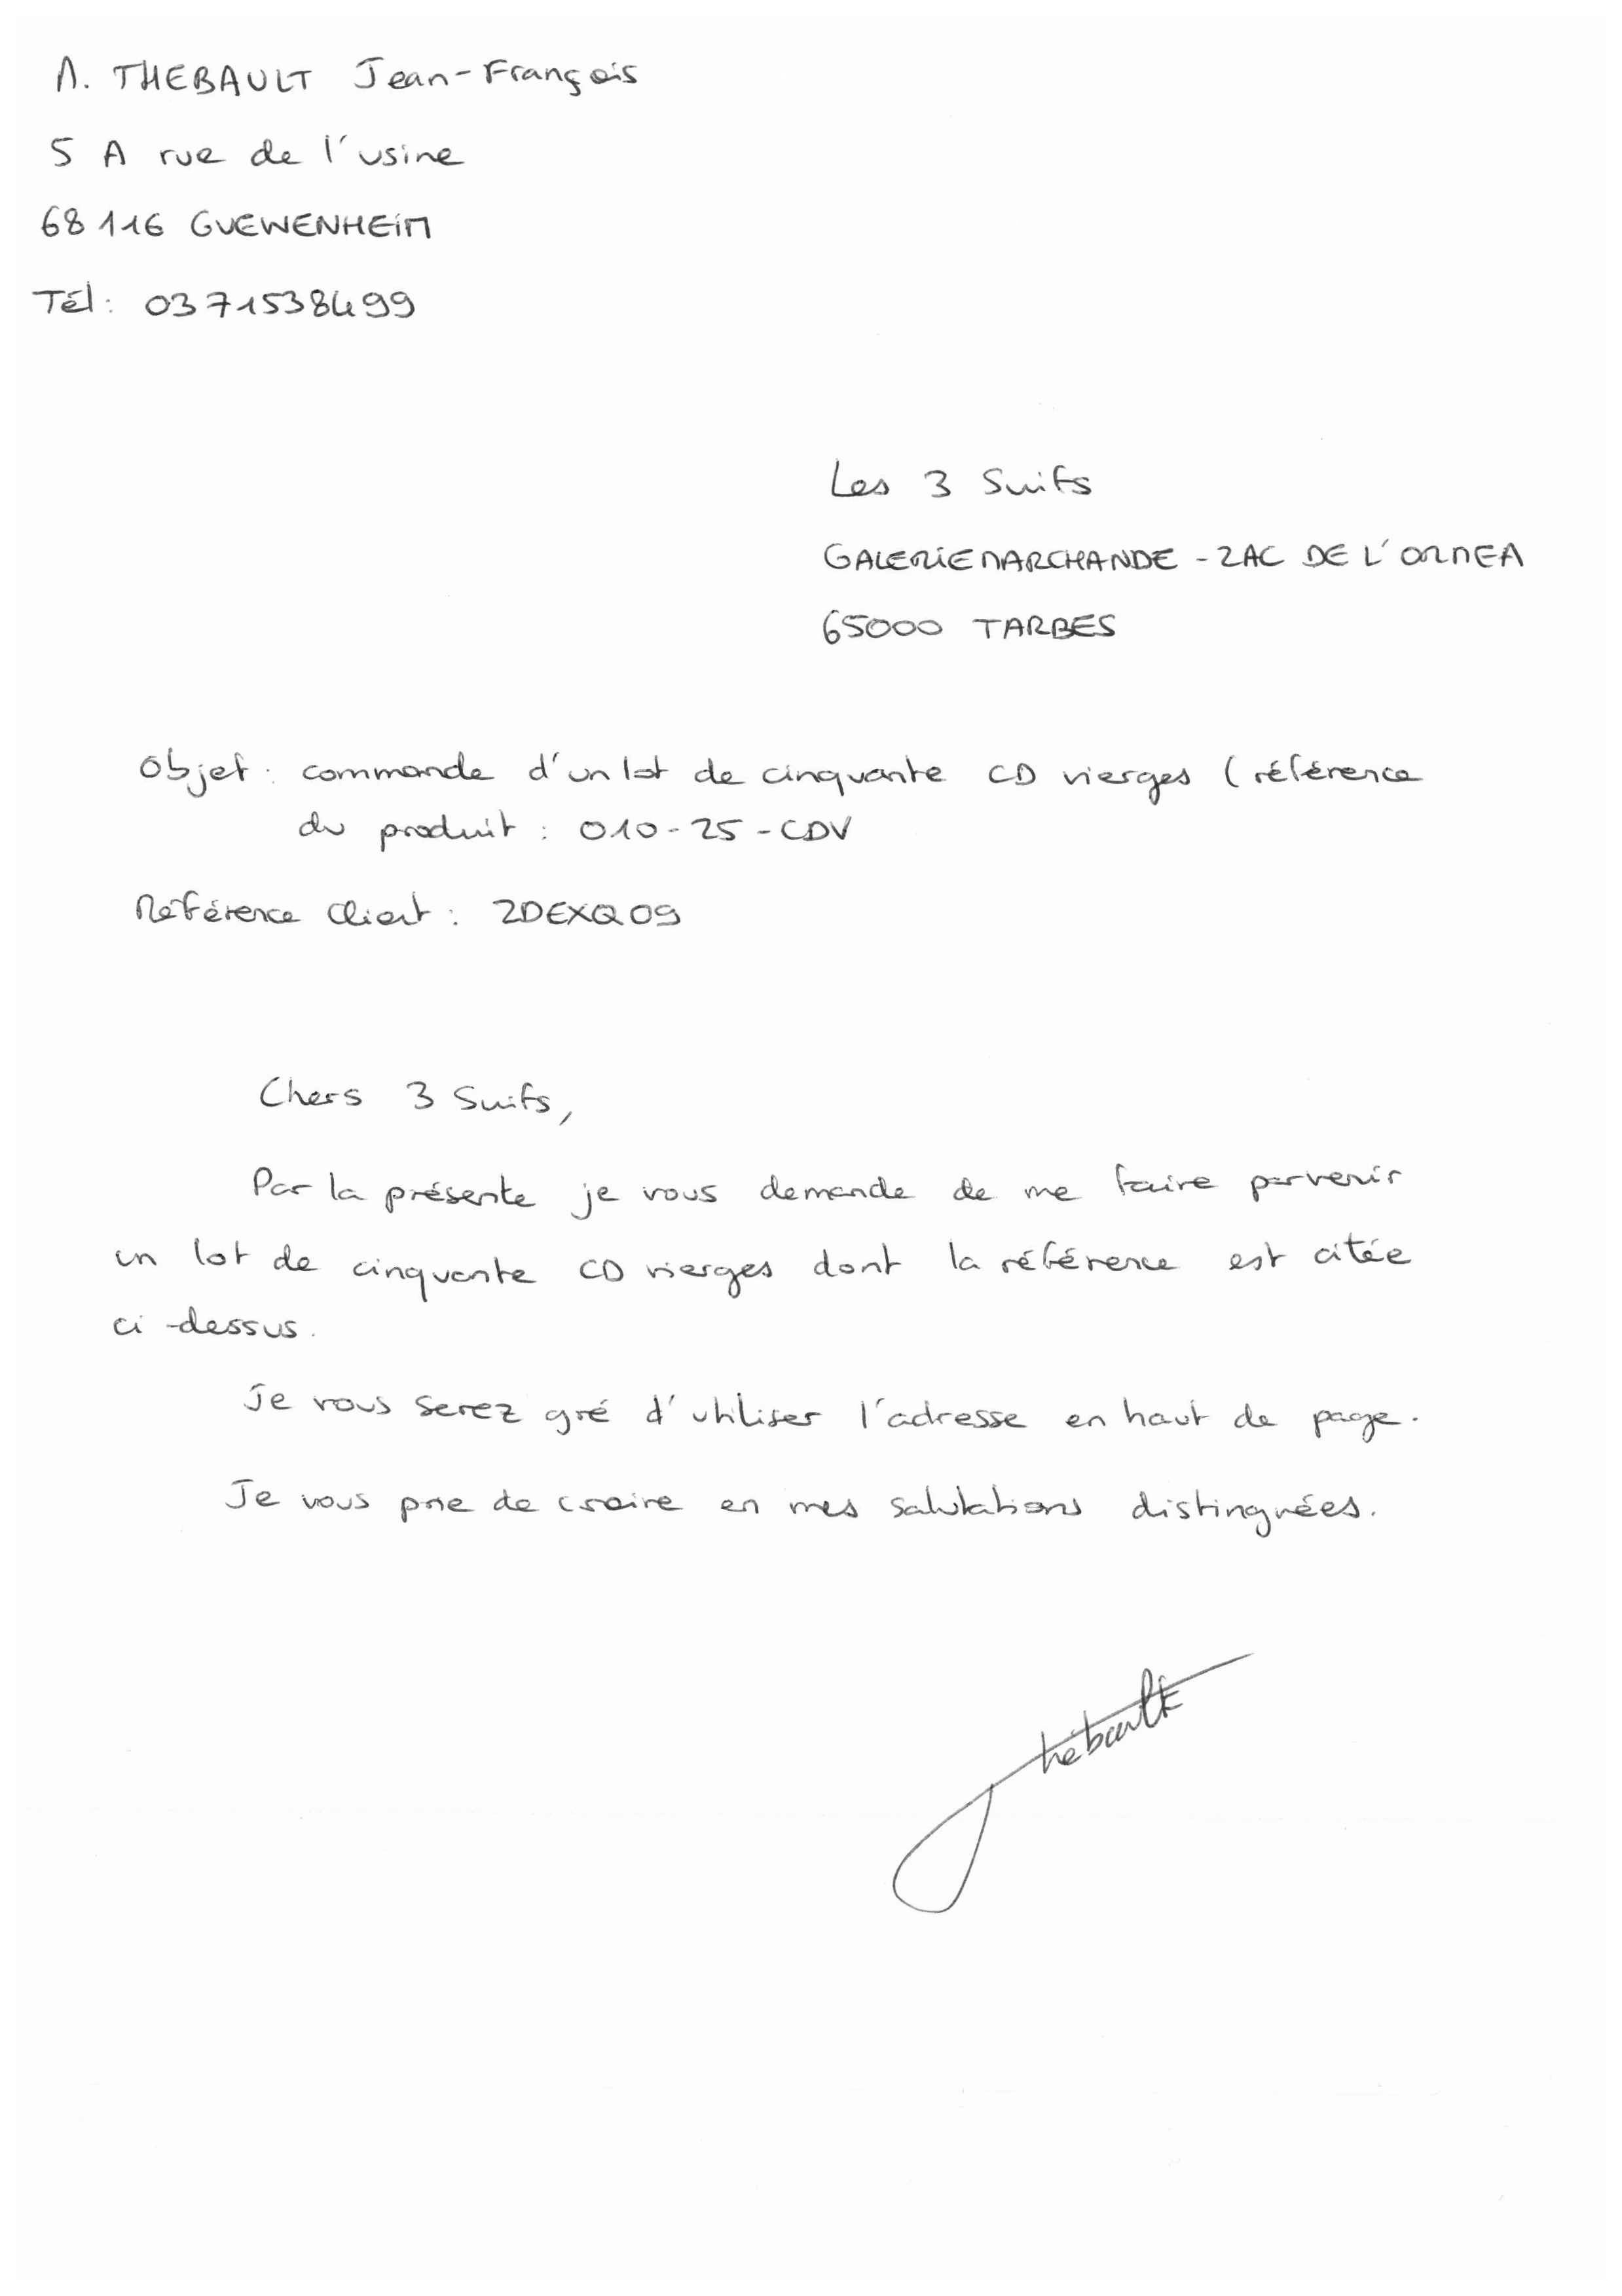 M. THEBAULT Jean-François
5 A rue de l'usine
68116 GUEWENHEIM
Tél: 0371538499
Les 3 Suits
GALERIE MARCHANDE - ZAC DE L'ORMEA
65000 TARBES
Objet : commande d'un lot de cinquante CD vierges (référence
du produit : 010-25-CDV
Référence Client : 2DEXQ09
Chers 3 Suits,
Par la présente je vous demande de me faire parvenir
un lot de cinquante CD vierges dont la référence est citée
ci-dessus.
Je vous serez gré d'utiliser l'adresse en haut de page.
Je vous prie de croire en mes salutations distinguées.
Thébault